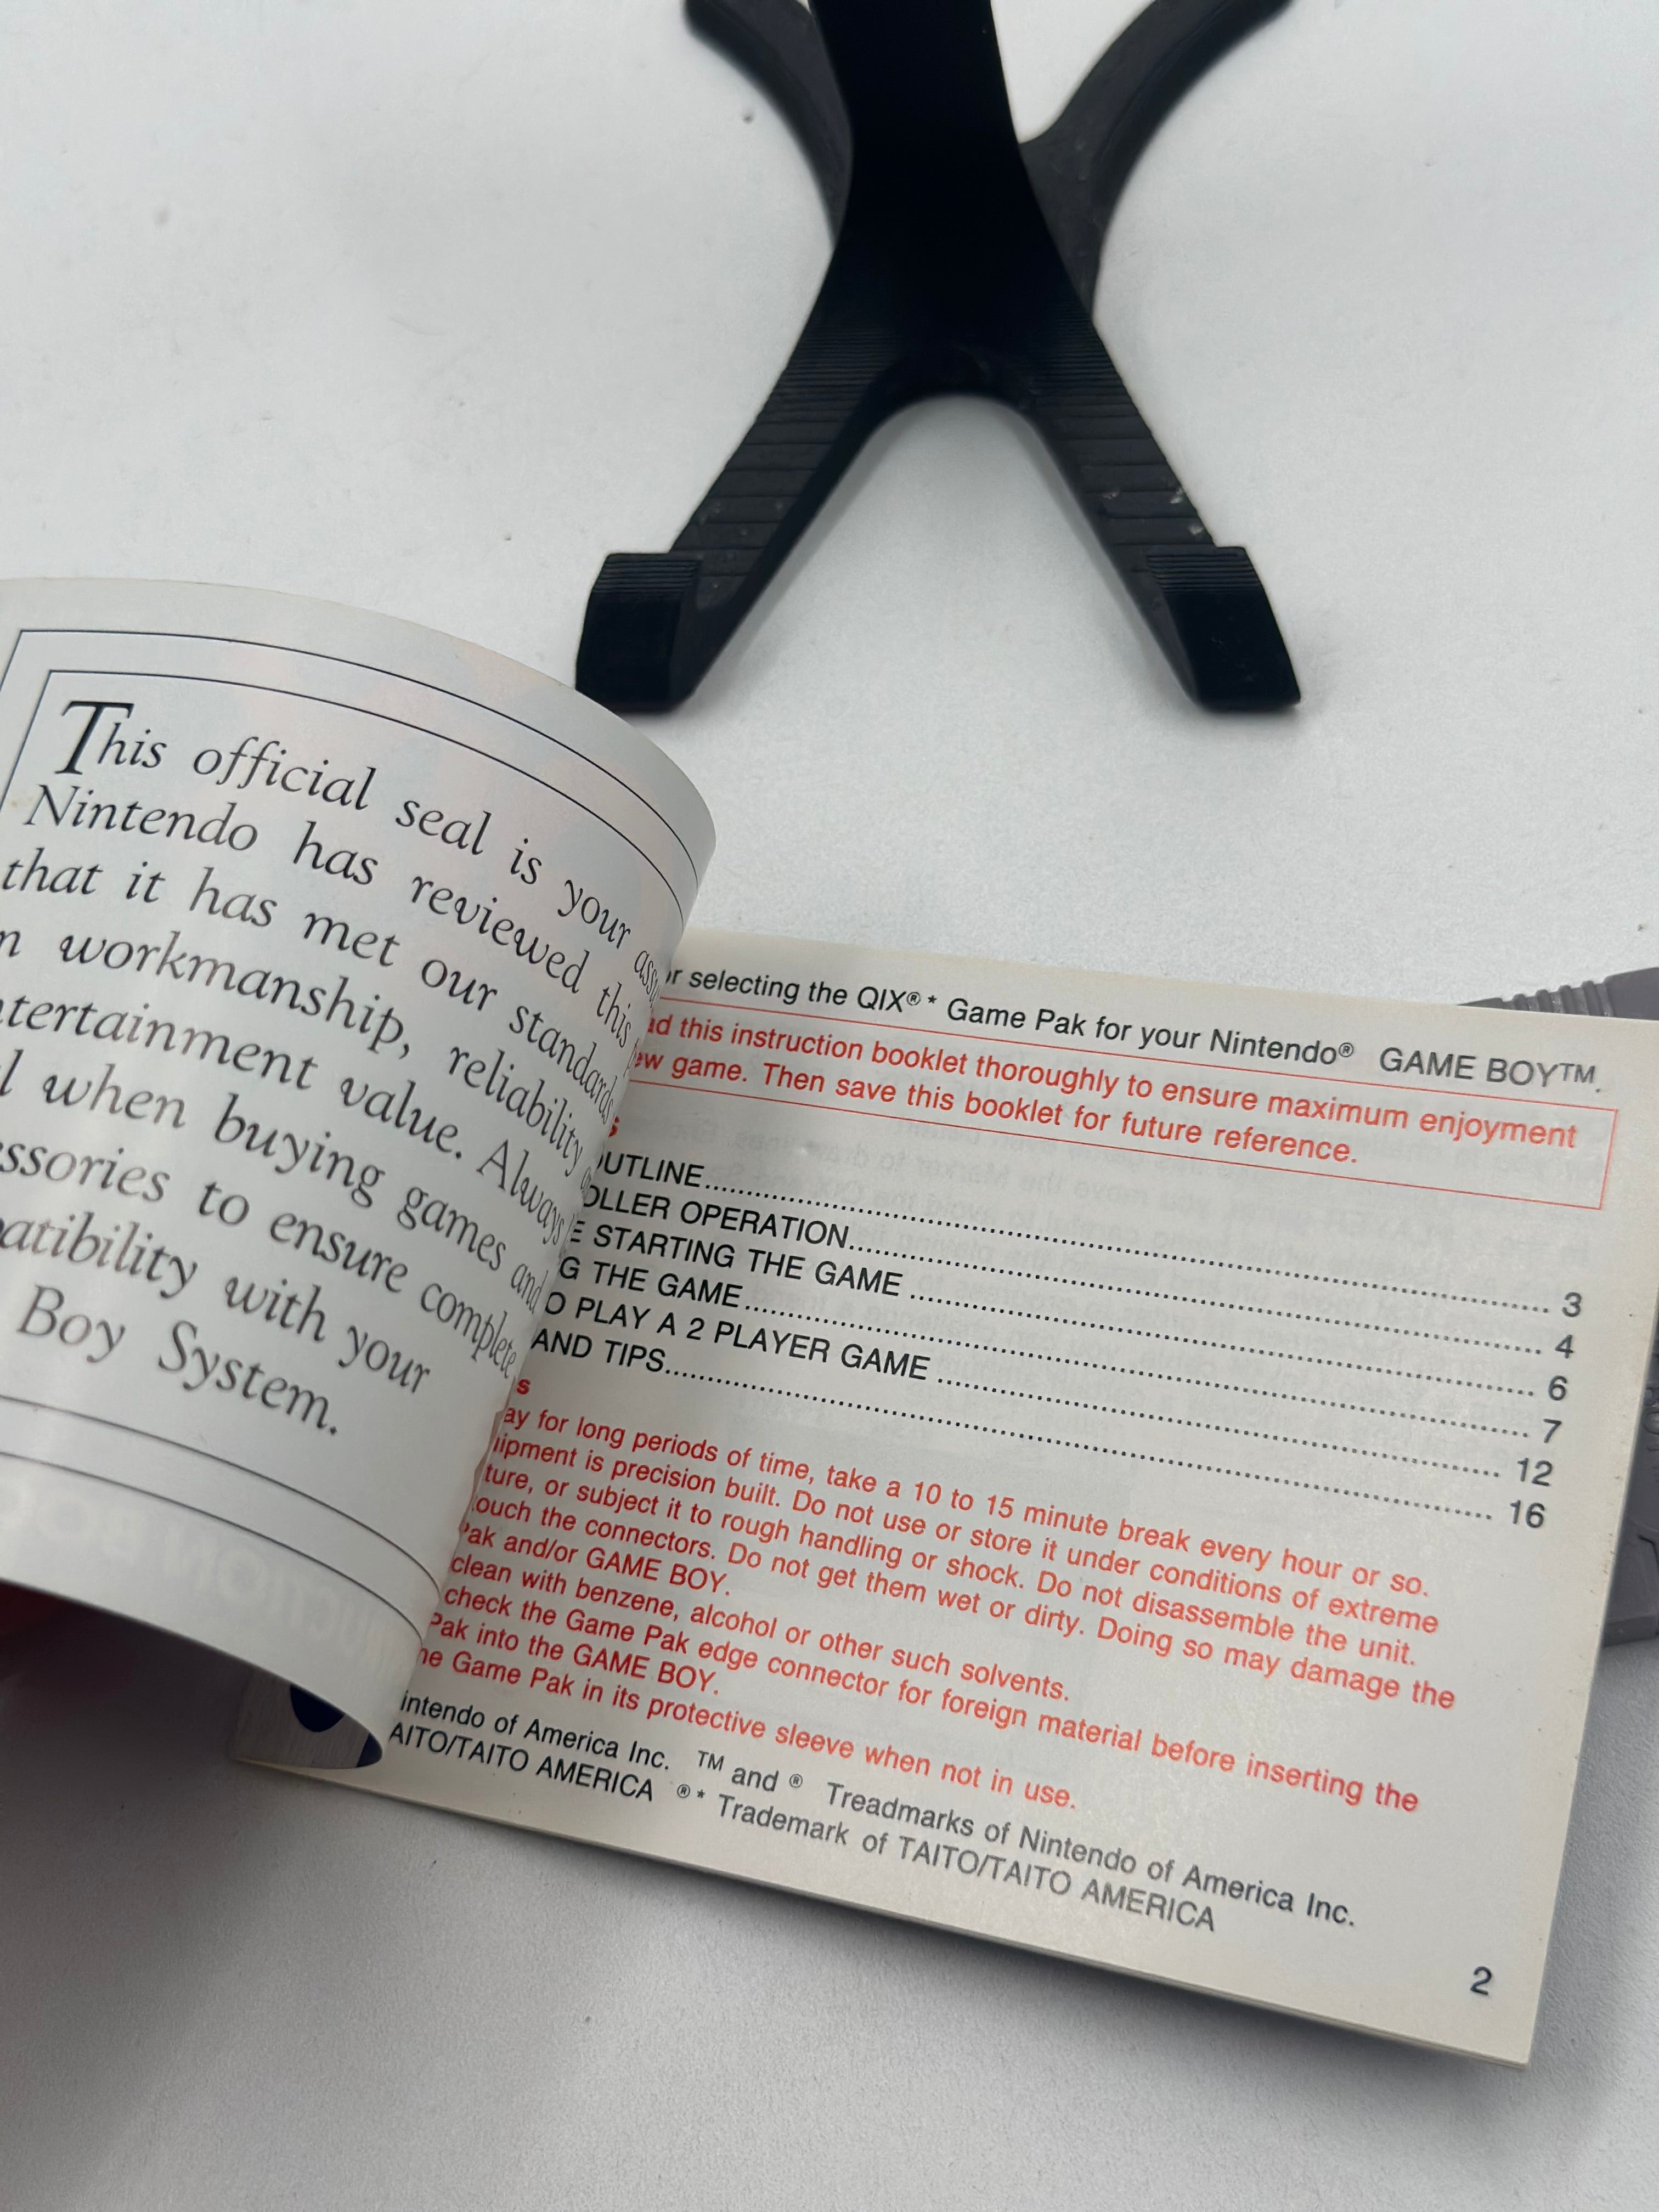 This official seal is your
Nintendo has reviewed this
that it has met our standards
workmanship, reliability
value. Always
when buying games and
to ensure complete
with your
Boy System.
selecting the QIX®* Game Pak for your Nintendo® GAME BOY™.
this instruction booklet thoroughly to ensure maximum enjoyment
game. Then save this booklet for future reference.
OPERATION 4
STARTING THE GAME 6
THE GAME 7
PLAY A 2 PLAYER GAME 12
AND TIPS 16
3
for long periods of time, take a 10 to 15 minute break every hour or so.
is precision built. Do not use or store it under conditions of extreme
or subject it to rough handling or shock. Do not disassemble the unit.
the connectors. Do not get them wet or dirty. Doing so may damage the
Pak and/or GAME BOY.
clean with benzene, alcohol or other such solvents.
check the Game Pak edge connector for foreign material before inserting the
Pak into the GAME BOY.
Game Pak in its protective sleeve when not in use.
of America Inc. ™ and ® Treadmarks of Nintendo of America Inc.
AMERICA ®* Trademark of TAITO/TAITO AMERICA
2